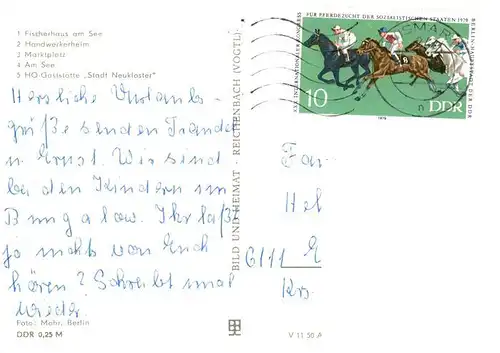 1 Fischerhaus am See
2 Handwerkerheim
3 Marktplatz
4 Am See
5 HO-Gaststätte „Stadt Neukloster"
Herzliche Urlaubs-
grüße senden
u. Ernst. Wir sind
bei den Kindern im
Bungalow. Ihr laßt
ja nichts von Euch
hören? Schreibt mal
wieder.
Foto: Mohr, Berlin
DDR 0,25 M
BILD UND HEIMAT · REICHENBACH (VOGTL)
V 11 50 A
XXII. INTERNATIONALER KONGRESS
FÜR PFERDEZUCHT DER SOZIALISTISCHEN STAATEN 1978
BERLIN-HAUPTSTADT DER DDR
10
DDR
1978
WISMAR
Fam.
Hel
6111
Krs.